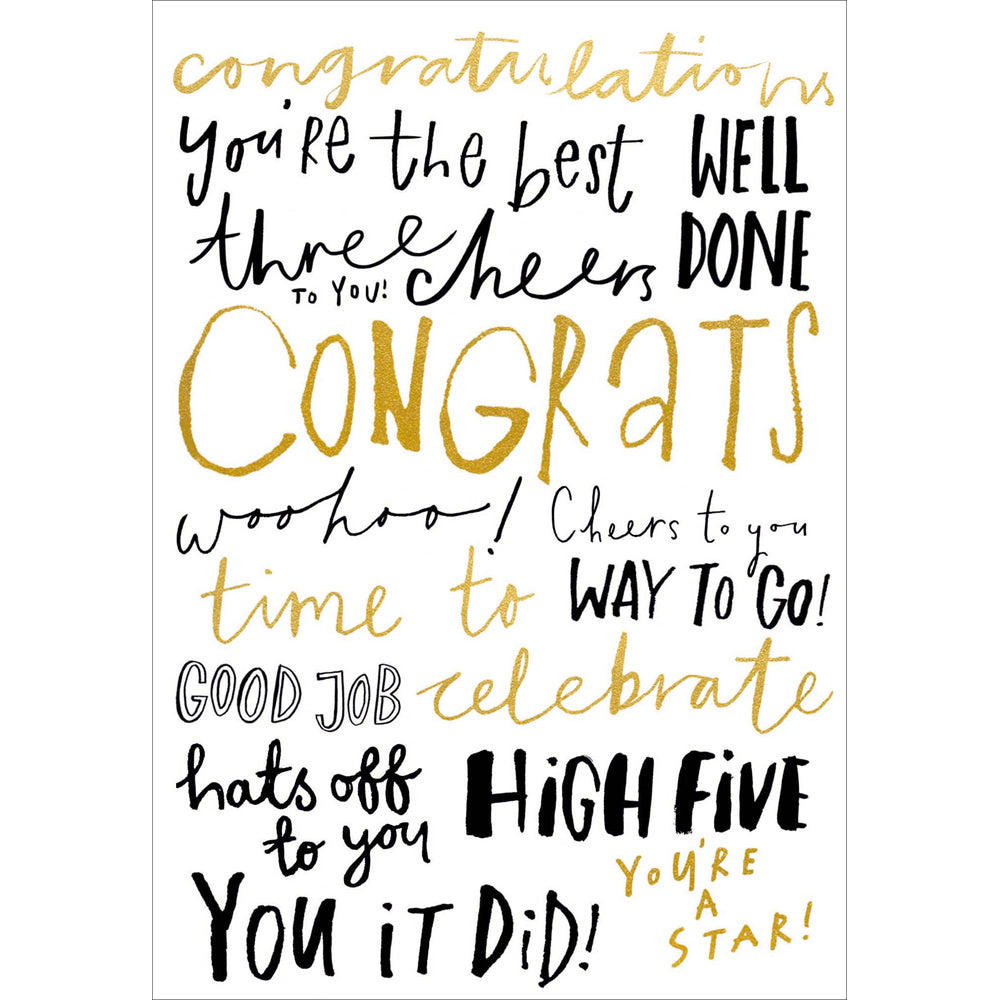 congratulations
you're the best
WELL
DONE
three cheers
TO YOU!
CONGRaTS
woohoo!
Cheers to you
time to
WAY TO GO!
GOOD JOB
celebrate
hats off
to you
HiGH FiVE
YOU iT DiD!
YOU'RE
A
STAR!